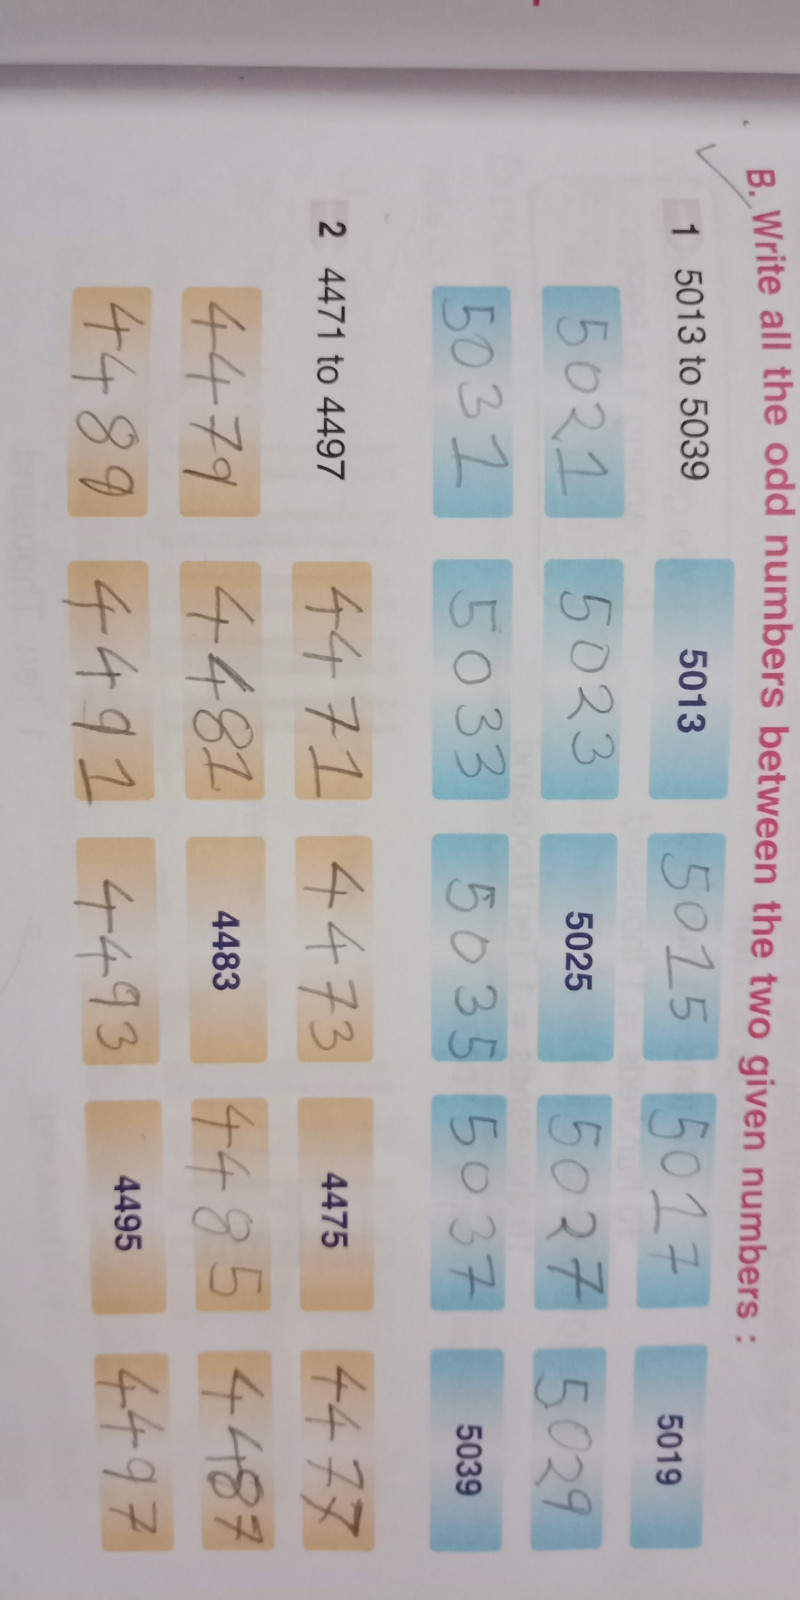 B. Write all the odd numbers between the two given numbers :
1 5013 to 5039 5013 5015 5017 5019
5021 5023 5025 5027 5029
5031 5033 5035 5037 5039
2 4471 to 4497 4471 4473 4475 4477
4479 4481 4483 4485 4487
4489 4491 4493 4495 4497